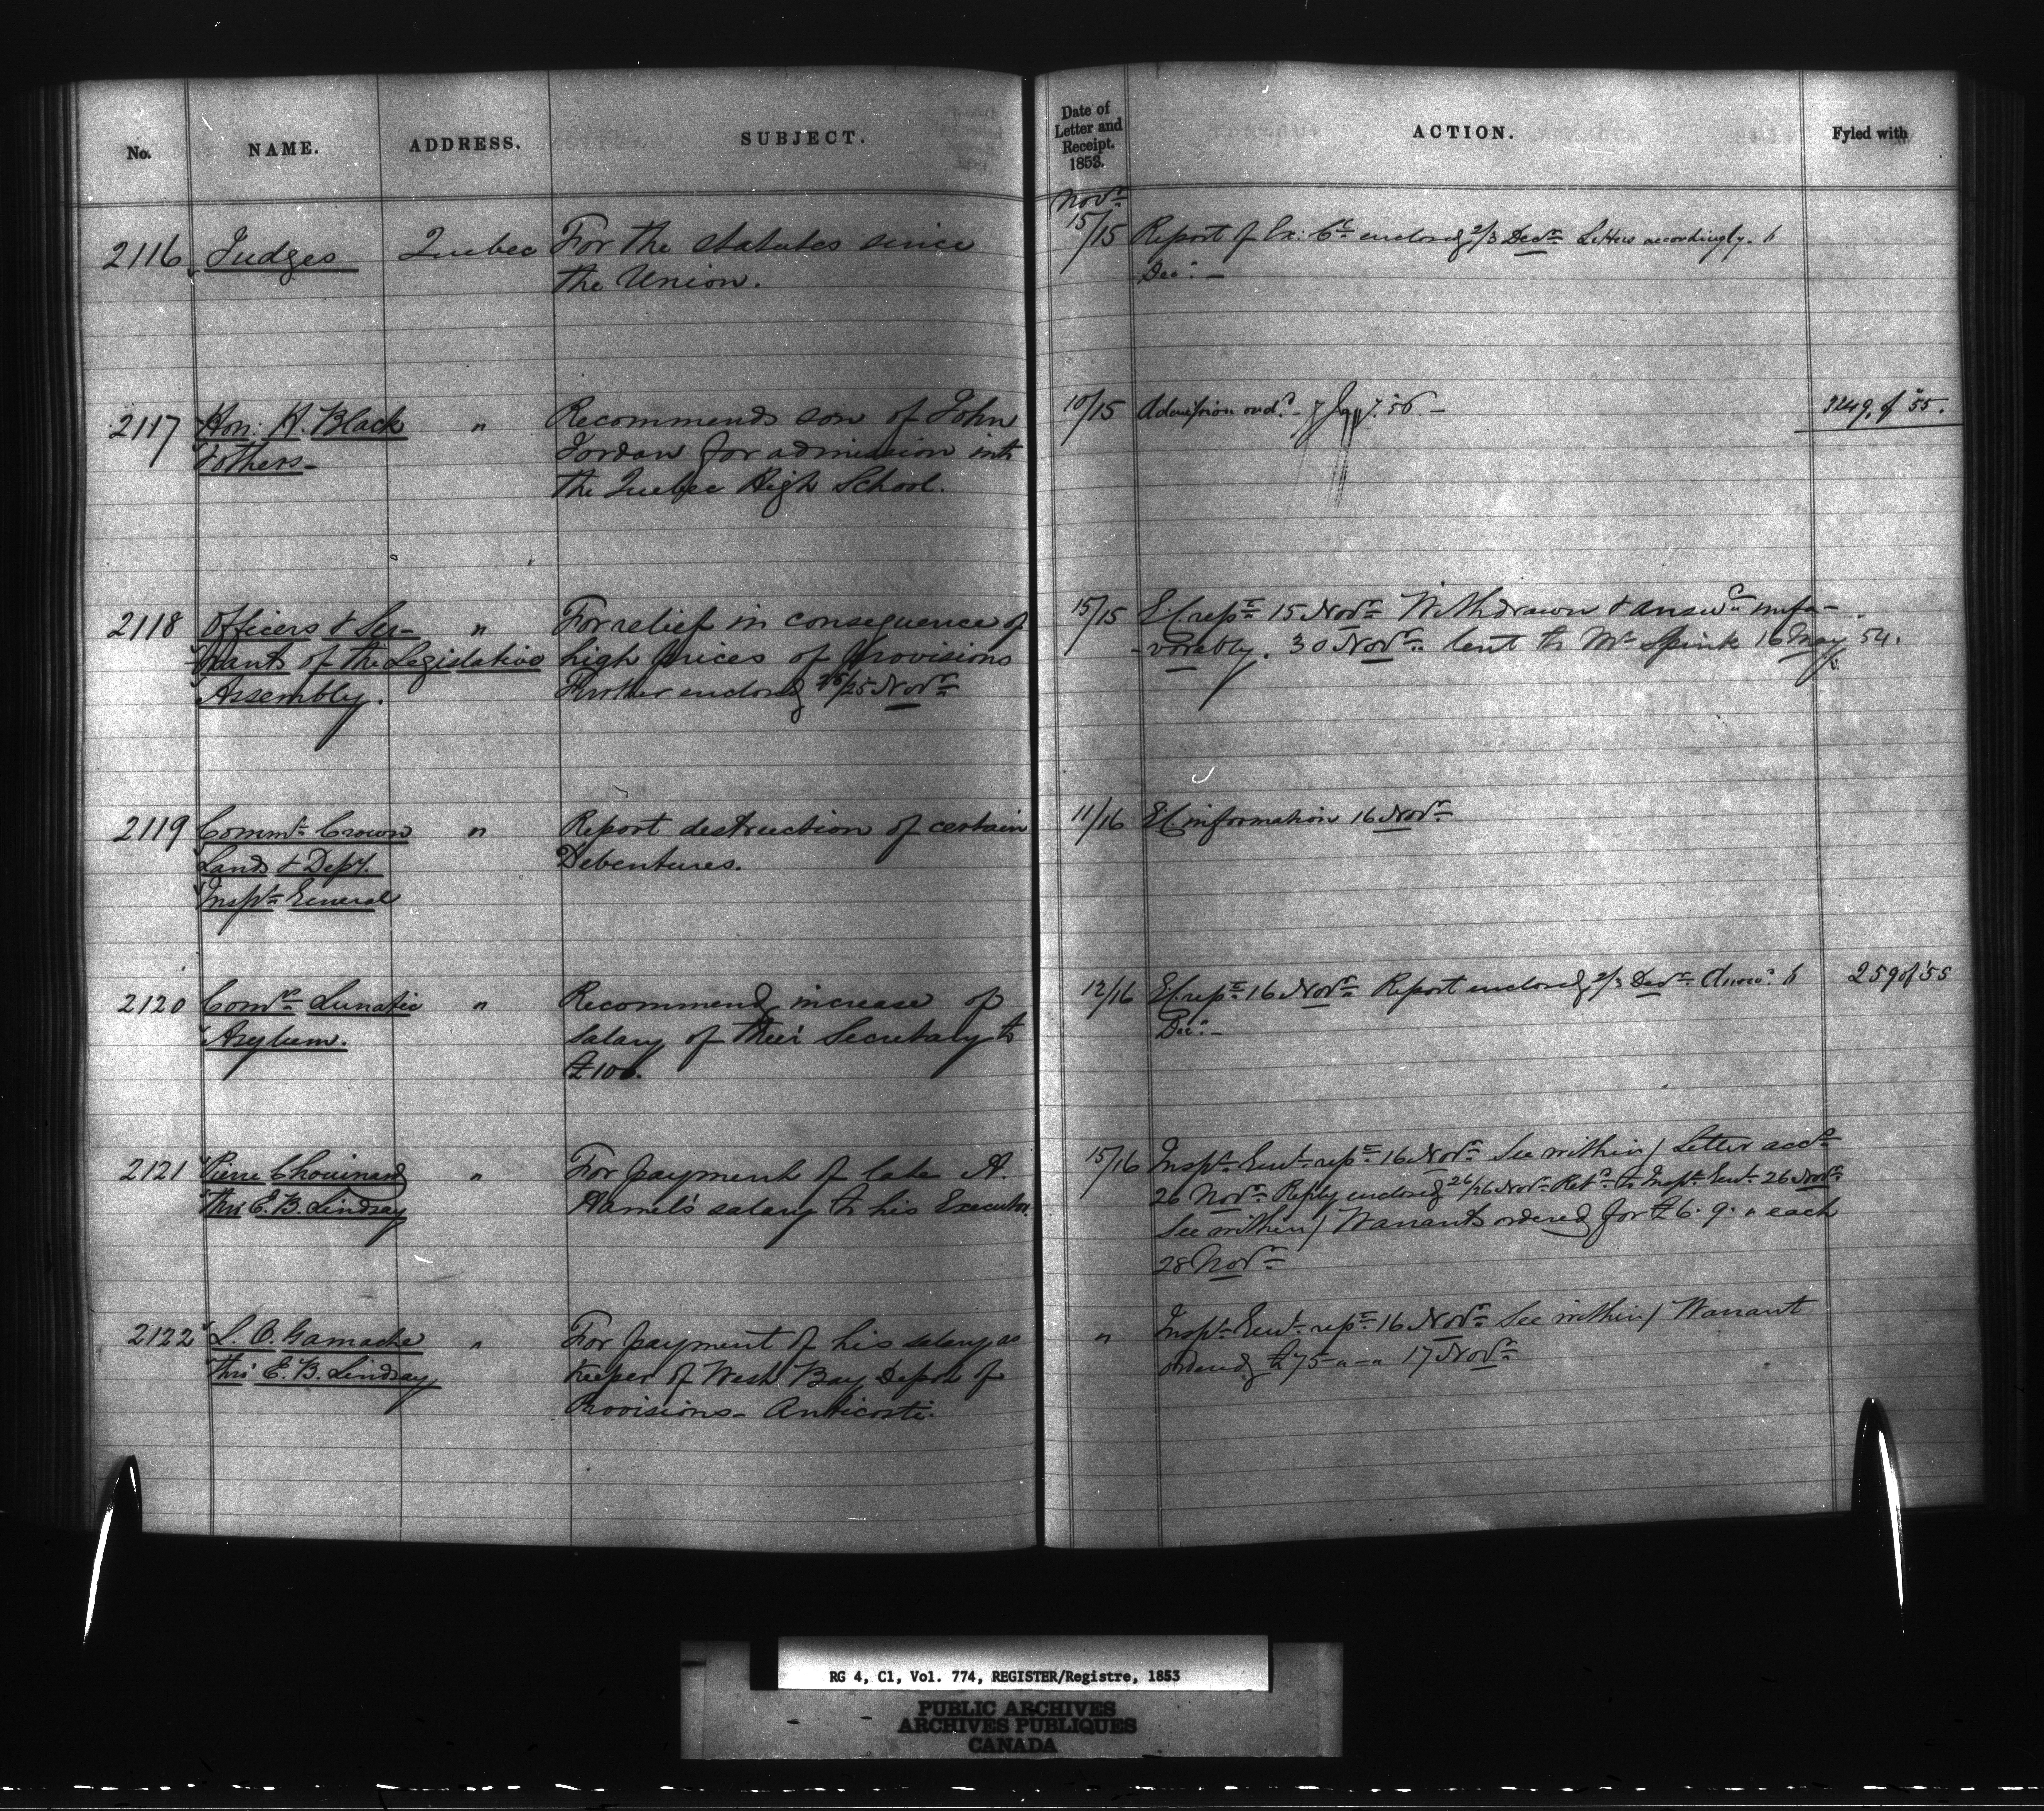 No. NAME. ADDRESS. SUBJECT.
Date of Letter and Receipt. 1853. ACTION. Fyled with
Novr
2116 Judges Quebec For the Statutes since
the Union.
15/15 Report of Ex: Cl enclosed 2/3 Decr Letters accordingly. 6
Decr. —
2117 Hon: H. Black " Recommends son of John
& others — Jordan for admission into
the Quebec High School.
10/15 Admission ord. — 7 56. — 3249. of '55.
2118 Officers & Ser- " For relief in consequence of
vants of the Legislative high prices of Provisions
Assembly. Further enclosed 25/25 Novr
15/15 E.C. rept 15 Novr Withdrawn & answd unfa-
-vorably. 30 Novr. lent to Mr Spink 16 May 54.
2119 Commr Crown " Report destruction of certain
Lands & Depy. Debentures.
Inspr General
11/16 E.C. information 16 Novr
2120 Comrs Lunatic " Recommend increase of
Asylum. salary of their Secretary to
£100.
12/16 E.C. rept 16 Novr Report enclosed 2/3 Decr Answd 6 259 of '55
Decr. —
2121 Pierre Chouinard " For payment of late A.
thro' E. B. Lindsay Hamel's salary to his Executor.
15/16 Inspr Genl rept 16 Novr See within / Letter accg
26 Novr Reply enclosed 26/26 Novr Retd to Inspr Genl 26 Novr
See within / Warrants ordered for £6. 9. " each
28 Novr
2122 L. O. Gamache " For payment of his salary as
thro' E. B. Lindsay Keeper of West Bay Depot of
Provisions — Anticosti.
" Inspr Genl rept 16 Novr See within / Warrant
ordered £75 - " - " 17 Novr
RG 4, C1, Vol. 774, REGISTER/Registre, 1853
PUBLIC ARCHIVES
ARCHIVES PUBLIQUES
CANADA